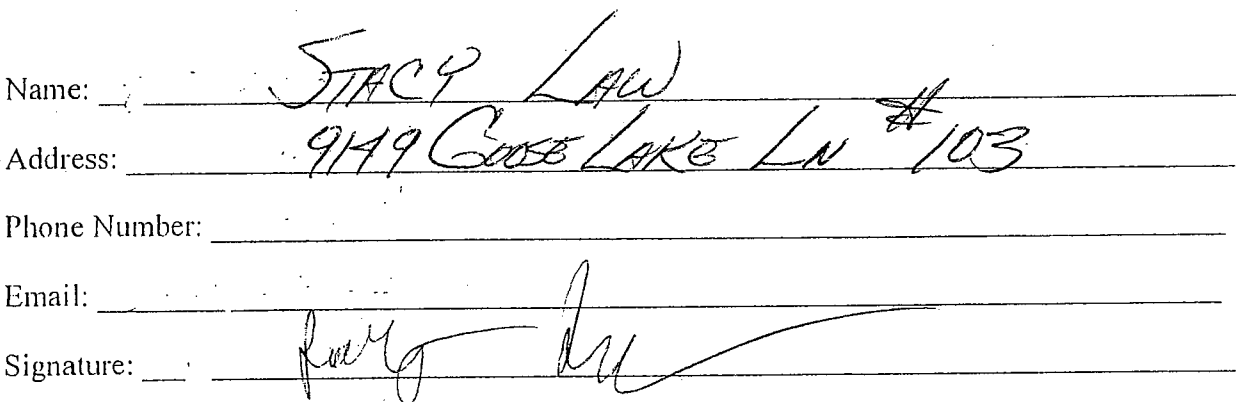 Name: STACY LAW
Address: 9149 GOOSE LAKE LN #103
Phone Number:
Email:
Signature: